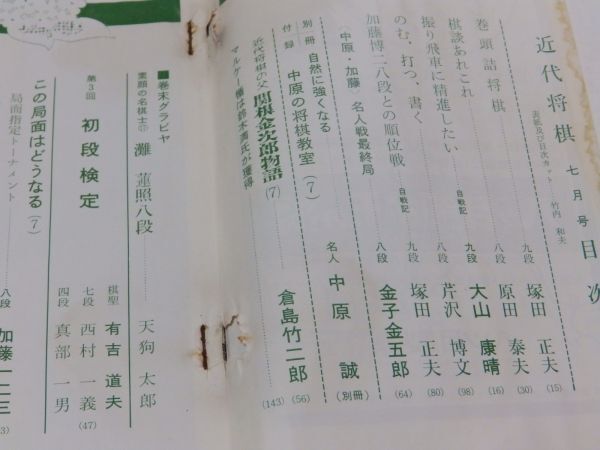 近代将棋 七月号 目次
表紙及び目次カット 竹内 和夫
巻頭詰将棋 九段 塚田 正夫 (15)
棋談あれこれ 八段 原田 泰夫 (30)
振り飛車に精進したい 自戦記 九段 大山 康晴 (16)
のむ、打つ、書く 八段 芹沢 博文 (98)
加藤博二八段との順位戦 自戦記 九段 塚田 正夫 (80)
〈中原・加藤〉名人戦最終局 八段 金子金五郎 (64)
別冊付録 自然に強くなる
中原の将棋教室 (7) 名人 中原 誠 (別冊)
近代将棋の父 関根金次郎物語 (7) 倉島竹二郎 (56)
(143)
■巻末グラビヤ
素顔の名棋士 灘 蓮照八段 天狗 太郎
第3回 初段検定 棋聖 有吉 道夫
七段 西村 一義 (47)
四段 真部 一男
この局面はどうなる (7)
局面指定トーナメント 八段 加藤一二三